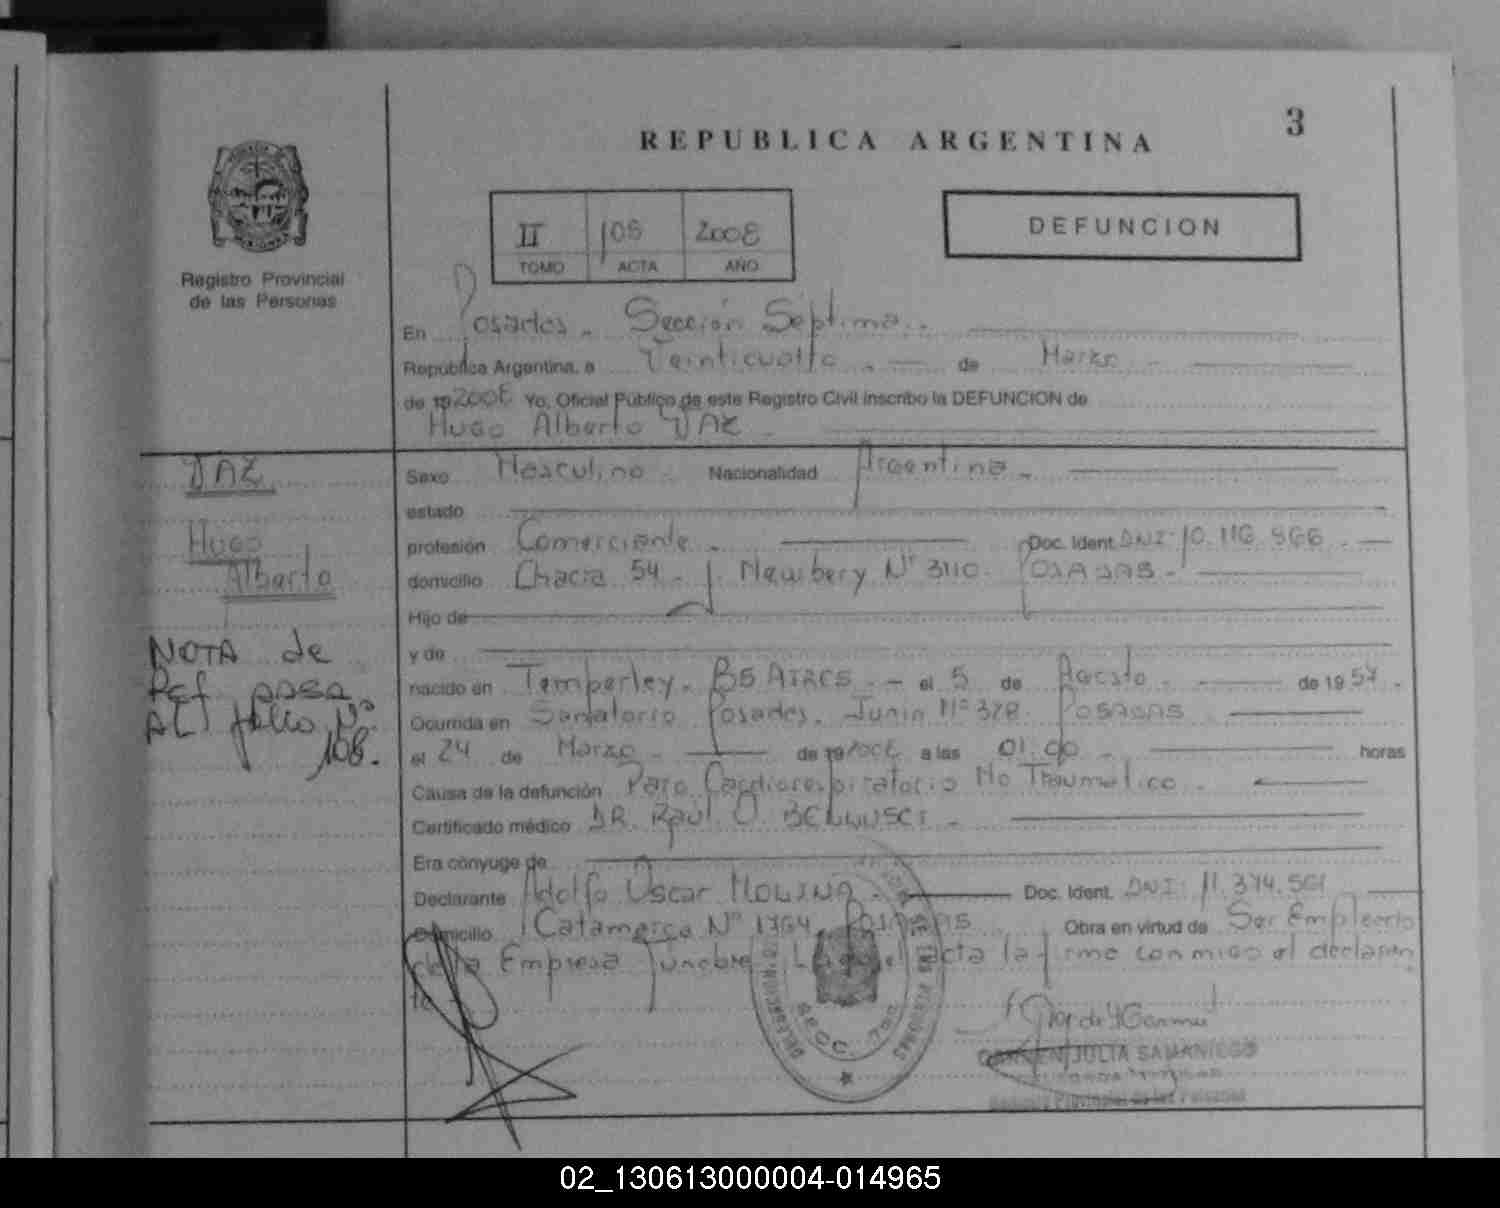 3
REPUBLICA ARGENTINA
II 105 2008
TOMO ACTA AÑO
DEFUNCION
Registro Provincial
de las Personas
En Posadas. Sección Séptima.
República Argentina, a Veinticuatro de Marzo
de 19 2008 Yo, Oficial Público de este Registro Civil inscribo la DEFUNCION de
Hugo Alberto VAZ
VAZ
Hugo
Alberto
NOTA de
Ref. pasa
AL folio Nº
108.
Sexo Masculino Nacionalidad Argentina
estado
profesión Comerciante Doc. Ident. DNI 10.116.566
domicilio Chacra 54 - J. Newbery Nº 3110. POSADAS
Hijo de
y de
nacido en Temperley. BS AIRES. el 5 de Agosto de 1957.
Ocurrida en Sanatorio Posadas. Junin Nº 328. POSADAS
el 24 de Marzo de 19 2008 a las 01.00 horas
Causa de la defunción Paro Cardiorespiratorio No Traumatico
Certificado médico DR. Raúl O.
Era cónyuge de
Declarante Adolfo Oscar MOLINA Doc. Ident. DNI: 11.374.561
Domicilio Catamarca Nº 1764. POSADAS Obra en virtud de Ser Empleado
de la Empresa Funebre. Leida el acta la firma conmigo el declaran
te
DELEGACION
SECC. 7ma
CARMEN JULIA SAMANIEGO
Registro Provincial de las Personas
02_130613000004-014965